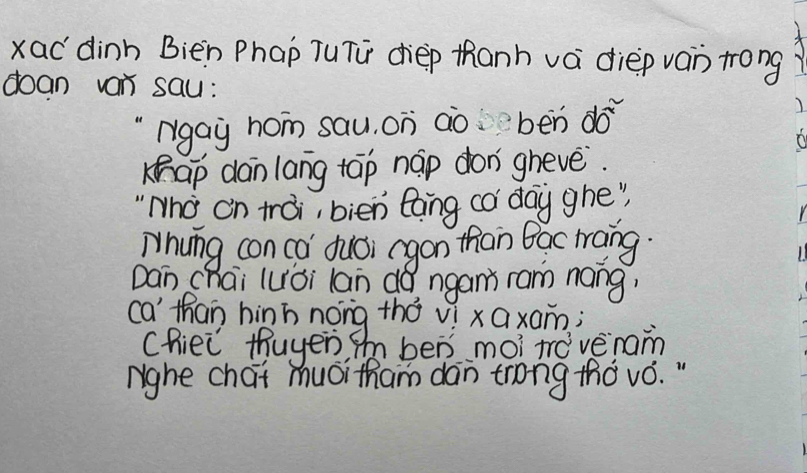 xác định Biện Pháp Tu Từ điệp thanh và điệp vần trong
đoạn văn sau:
"Ngày hôm sau, ồn ào bến đỗ
Khắp dân làng tấp nập đón ghe về.
"Nhờ ơn trời, biển lặng cá đầy ghe",
Những con cá tươi ngon thân bạc trắng.
Dân chài lưới làn da ngăm rám nắng,
Cả thân hình nồng thở vị xa xăm;
Chiếc thuyền im bến mỏi trở về nằm
Nghe chất muối thấm dần trong thớ vỏ."